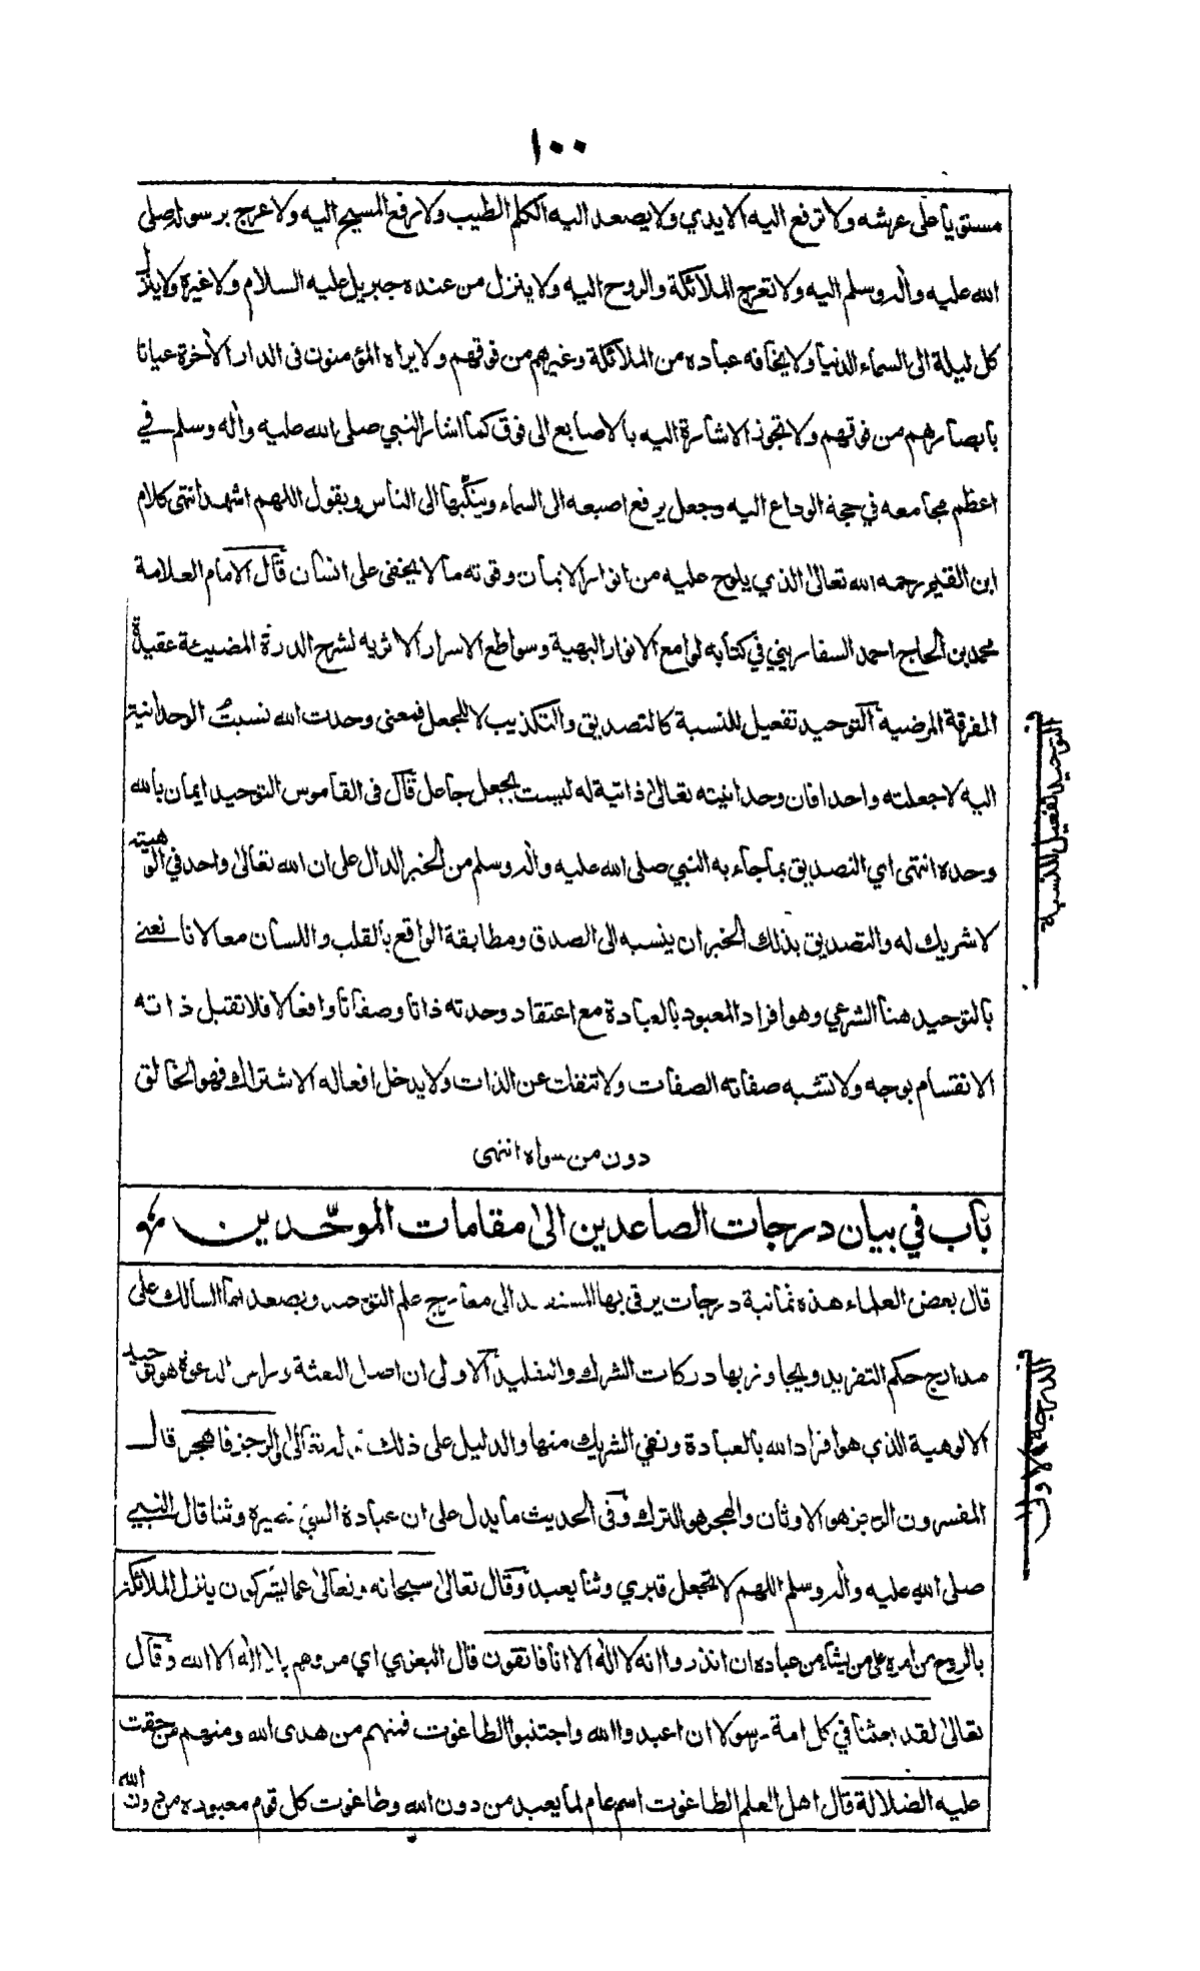 ١٠٠
مستويا على عرشه ولا ترفع اليه الايدي ولا يصعد اليه الكلم الطيب ولا رفع المسيح اليه ولا عرج برسوله صلى
الله عليه وآله وسلم اليه ولا تعرج الملائكة والروح اليه ولا ينزل من عنده جبريل عليه السلام ولا غيره ولا ينزل
كل ليلة الى السماء الدنيا ولا يخافه عباده من الملائكة وغيرهم من فوقهم ولا يراه المؤمنون في الدار الآخرة عيانا
بابصارهم من فوقهم ولا تجوز الاشارة اليه بالاصابع الى فوق كما اشار النبي صلى الله عليه وآله وسلم في
اعظم مجامعه في حجة الوداع اليه وجعل يرفع اصبعه الى السماء وينكبها الى الناس ويقول اللهم اشهد انتهى كلام
ابن القيم رحمه الله تعالى الذي يلوح عليه من انوار الايمان وقوته ما لا يخفى على انسان قال الامام العلامة
محمد بن الحاج احمد السفاريني في كتابه لوامع الانوار البهية وسواطع الاسرار الاثريه لشرح الدرة المضيئة عقيدة
الفرقة المرضية التوحيد تفعيل للنسبة كالتصديق والتكذيب لا للجعل فمعنى وحدت الله نسبت الوحدانية
اليه لا جعلته واحدا فان وحدانيته تعالى ذاتية له ليست بجعل جاعل قال في القاموس التوحيد ايمان بالله
وحده انتهى اي التصديق بما جاء به النبي صلى الله عليه وآله وسلم من الخبر الدال على ان الله تعالى واحد في الوهيته
لا شريك له والتصديق بذلك الخبر ان ينسبه الى الصدق ومطابقة الواقع بالقلب واللسان معا لانا نعني
بالتوحيد هنا الشرعي وهو افراد المعبود بالعبادة مع اعتقاد وحدته ذاتا وصفاتا وافعالا فلا تقبل ذاته
الانقسام بوجه ولا تشبه صفاته الصفات ولا تنفك عن الذات ولا يدخل افعاله الاشتراك فهو الخالق
دون من سواه انتهى
باب في بيان درجات الصاعدين الى مقامات الموحّدين
قال بعض العلماء هذه ثمانية درجات يرقى بها الى معارج علم التوحيد ويصعد بها السالك على
مدارج حكم التفريد ويجاوز بها دركات الشرك والتقليد الاولى ان اصل البعثة وراس الدعوة هو توحيد
الالوهية الذي هو افراد الله بالعبادة ونفي الشريك منها والدليل على ذلك قوله تعالى والرجز فاهجر قال
المفسرون الرجز هو الاوثان والهجر هو الترك وفي الحديث ما يدل على ان عبادة الشئ تصيره وثنا قال النبي
صلى الله عليه وآله وسلم اللهم لا تجعل قبري وثنا يعبد وقال تعالى سبحانه وتعالى عما يشركون ينزل الملائكة
بالروح من امره على من يشاء من عباده ان انذروا انه لا اله الا انا فاتقون قال البغوي اي مروهم بلا اله الا الله وقال
تعالى لقد بعثنا في كل امة رسولا ان اعبدوا الله واجتنبوا الطاغوت فمنهم من هدى الله ومنهم من حقت
عليه الضلالة قال اهل العلم الطاغوت اسم عام لما يعبد من دون الله وطاغوت كل قوم معبوده من دون الله